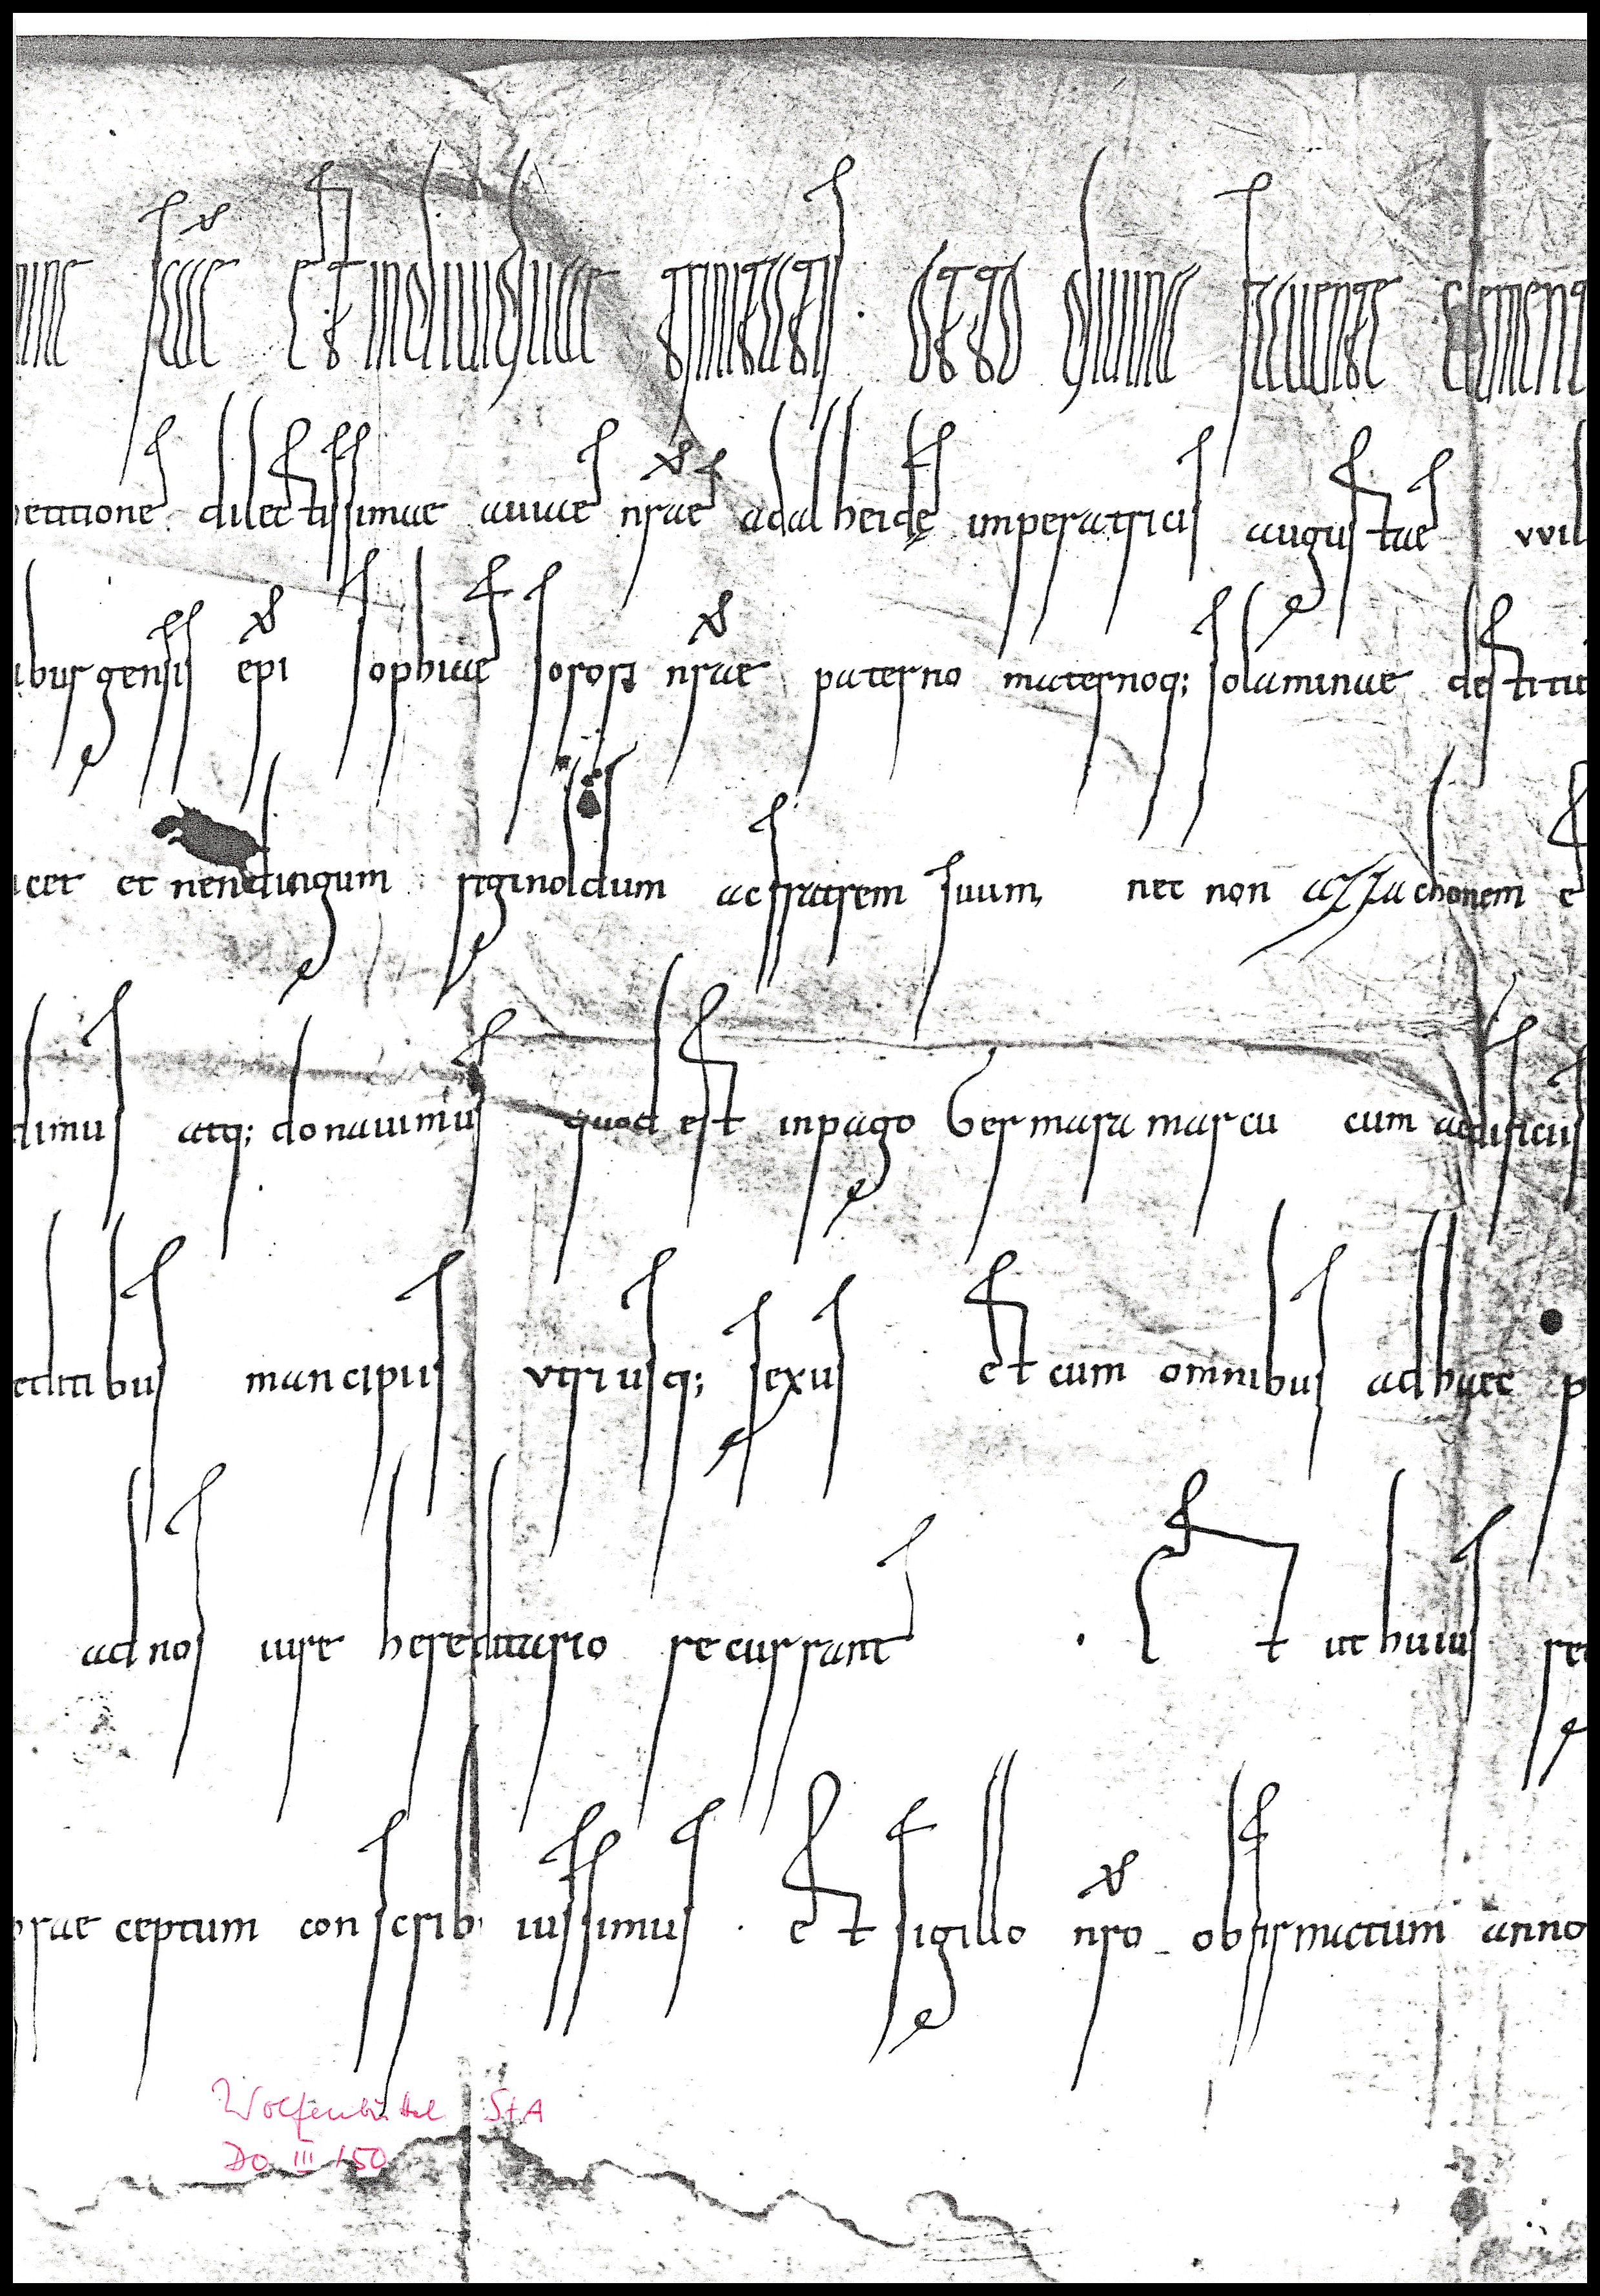 mine scae et indiuiduae trinitatis. otto diuina fauente clementi
petitione dilectissimae auiae nrae adalheide imperatricis augustae vvil
ibusgensis epi sophiae sorori nrae paterno maternoq; solaminae destitu
icet et nendingum reginoldum ac fratrem suum, nec non azzachonem e
dimus atq; donauimus quod est inpago Germara marcu cum aedificiis
editibus mancipiis vtriusq; sexus et cum omnibus adhaec p
ad nos iure hereditario recurrant . Et ut huius re
prae ceptum conscribi iussimus . et sigillo nro obfirmatum anno
Wolfenbüttel StA
DO III 150